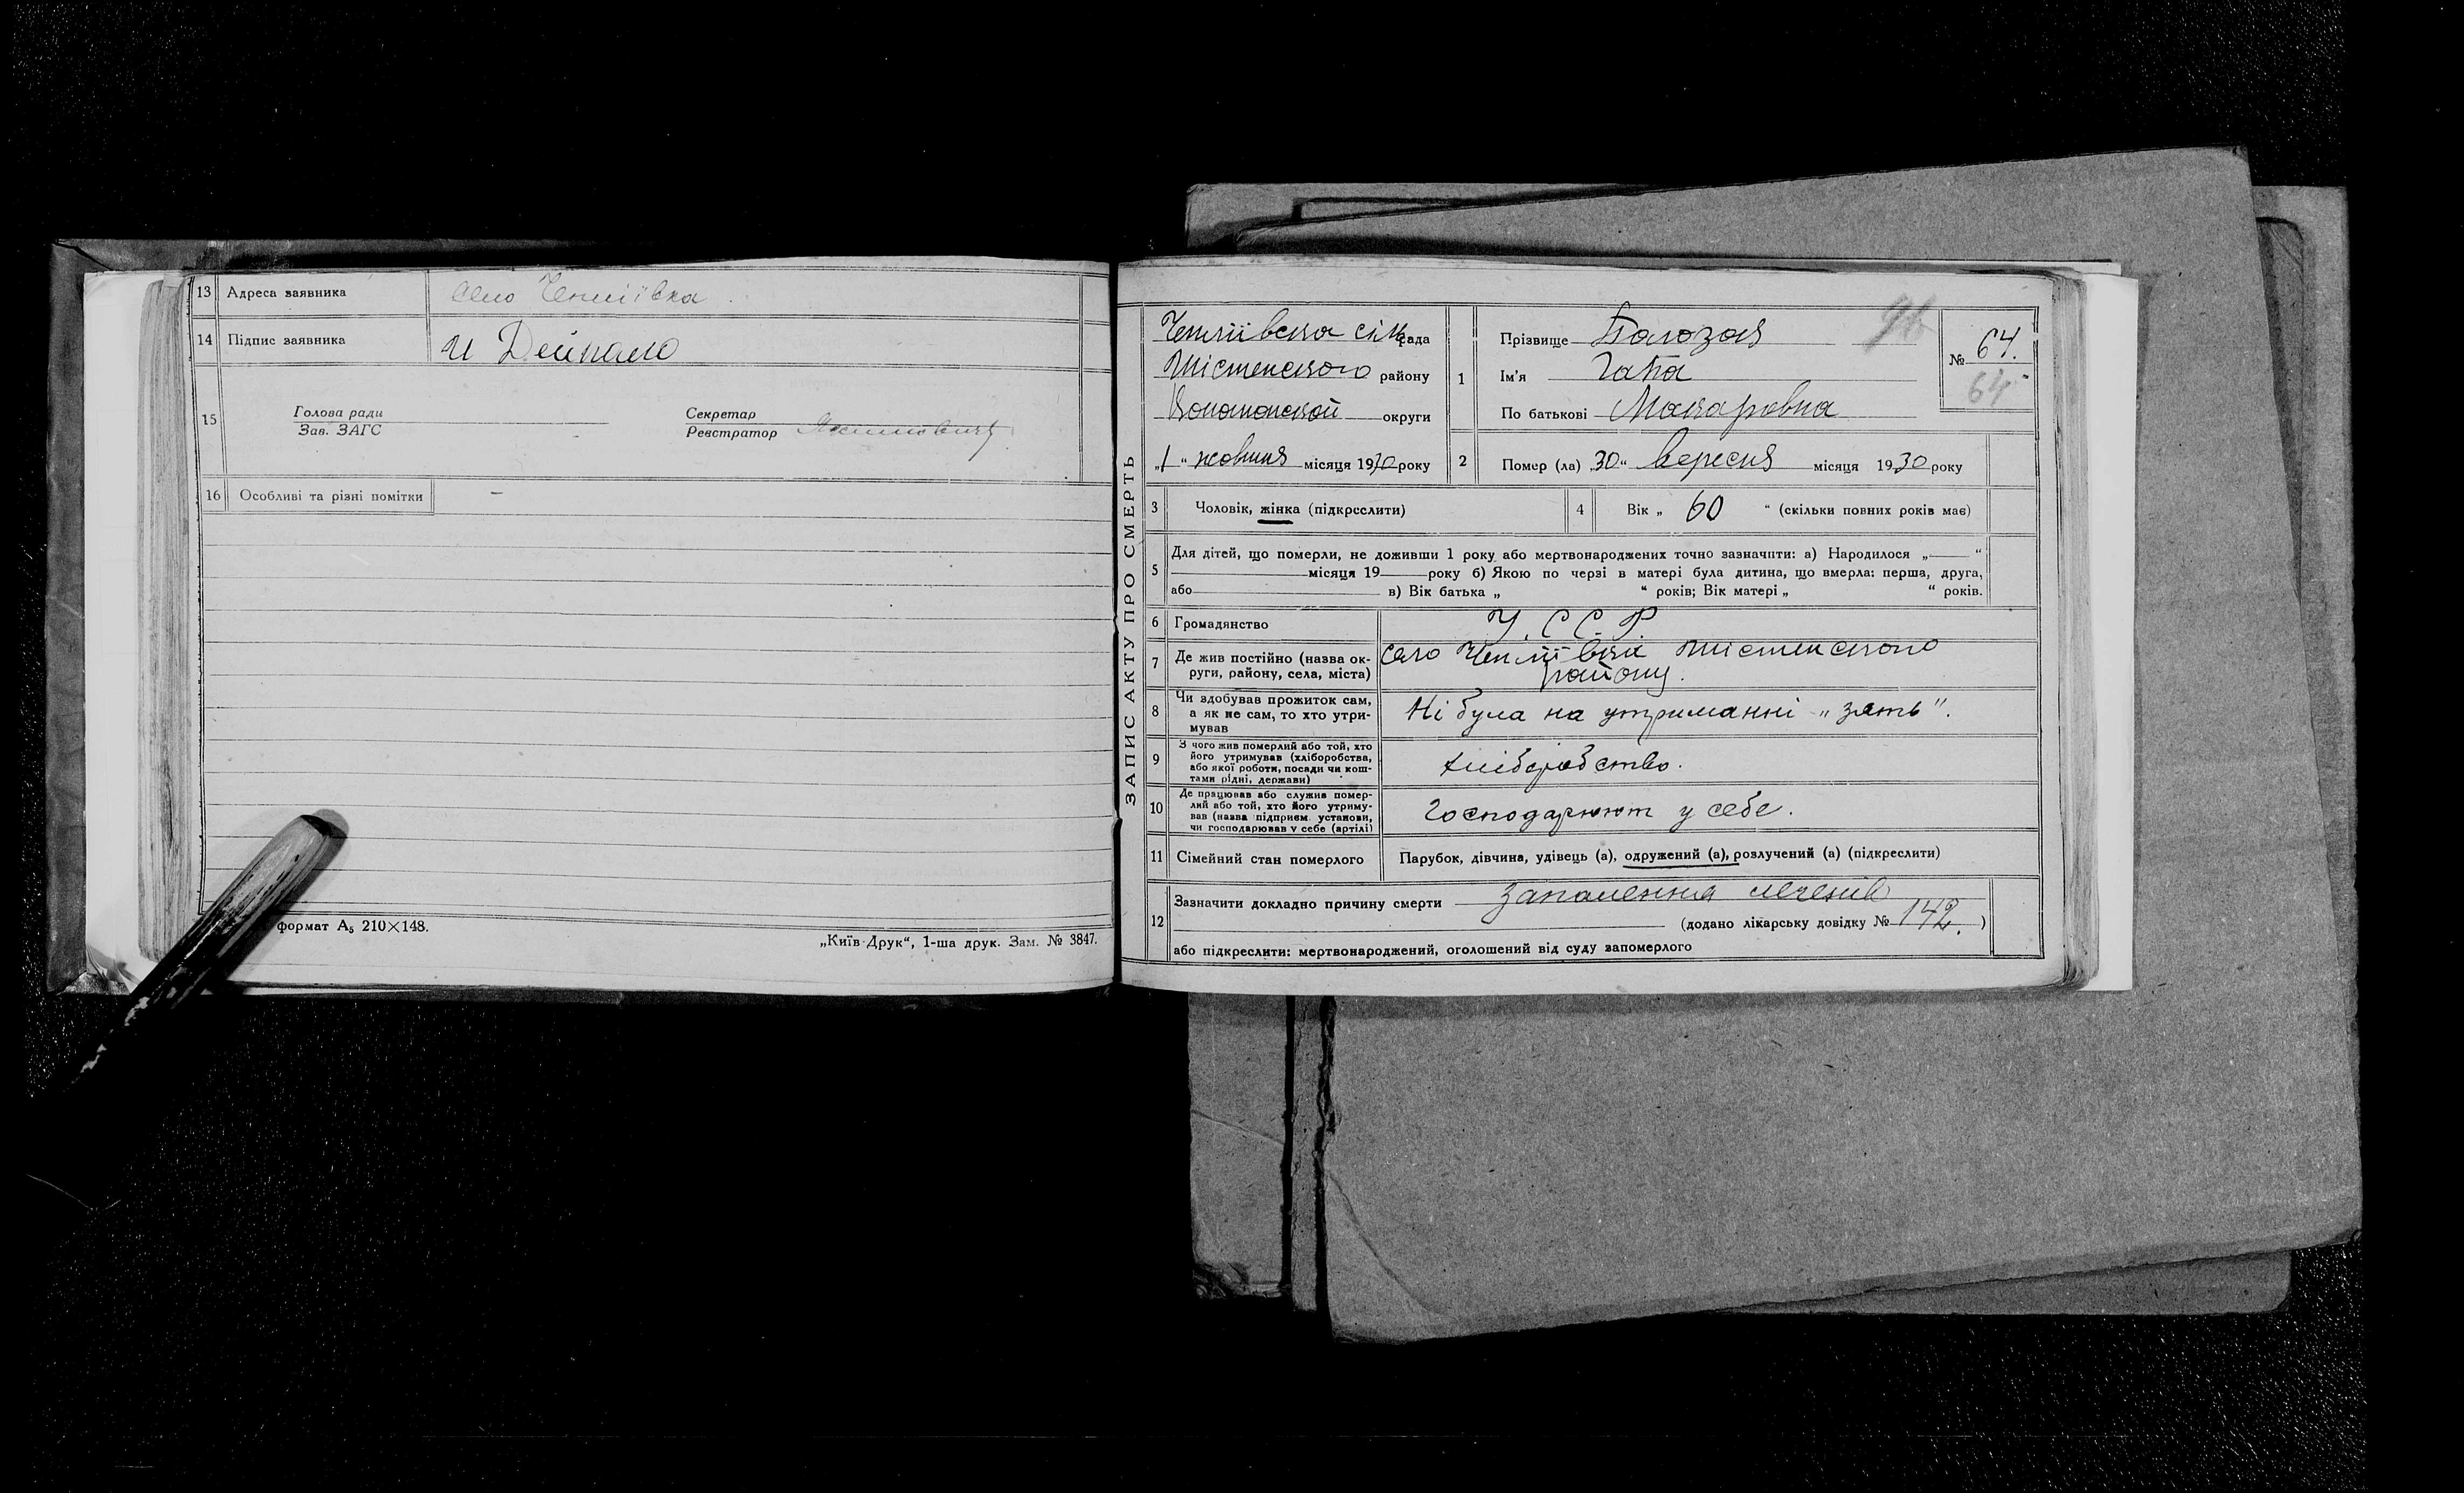 13 Адреса заявника село Чепліївка.
14 Підпис заявника И Дейкало
15 Голова ради Секретар
Зав. ЗАГС Реєстратор
16 Особливі та різні помітки –
формат А5 210×148.
„Київ-Друк“, 1-ша друк. Зам. № 3847.
ЗАПИС АКТУ ПРО СМЕРТЬ
Чепліївська сільрада
району
Конотопской округи
„1“ жовтня місяця 1930 року
1 Прізвище
Ім'я Гапа
По батькові Макаровна
96
№ 64.
64
2 Помер (ла) „30“ вересня місяця 1930 року
3 Чоловік, жінка (підкреслити)
4 Вік „ 60 “ (скільки повних років має)
5 Для дітей, що померли, не доживши 1 року або мертвонароджених точно зазначити: а) Народилося „ “
місяця 19 року б) Якою по черзі в матері була дитина, що вмерла: перша, друга,
або в) Вік батька „ “ років; Вік матері „ “ років.
6 Громадянство У. С С. Р.
7 Де жив постійно (назва ок-
руги, району, села, міста)
село Чепліївки
району.
8 Чи здобував прожиток сам,
а як не сам, то хто утри-
мував
Ні була на утриманні „зять“.
9 З чого жив померлий або той, хто
його утримував (хліборобства,
або якої роботи, посади чи кош-
тами рідні, держави)
хліборобство.
10 Де працював або служив помер-
лий або той, хто його утриму-
вав (назва підприєм. установи,
чи господарював у себе (артілі)
Господарюют у себе.
11 Сімейний стан померлого Парубок, дівчина, удівець (а), одружений (а), розлучений (а) (підкреслити)
12 Зазначити докладно причину смерти запалення легенів
(додано лікарську довідку № 142. )
або підкреслити: мертвонароджений, оголошений від суду запомерлого